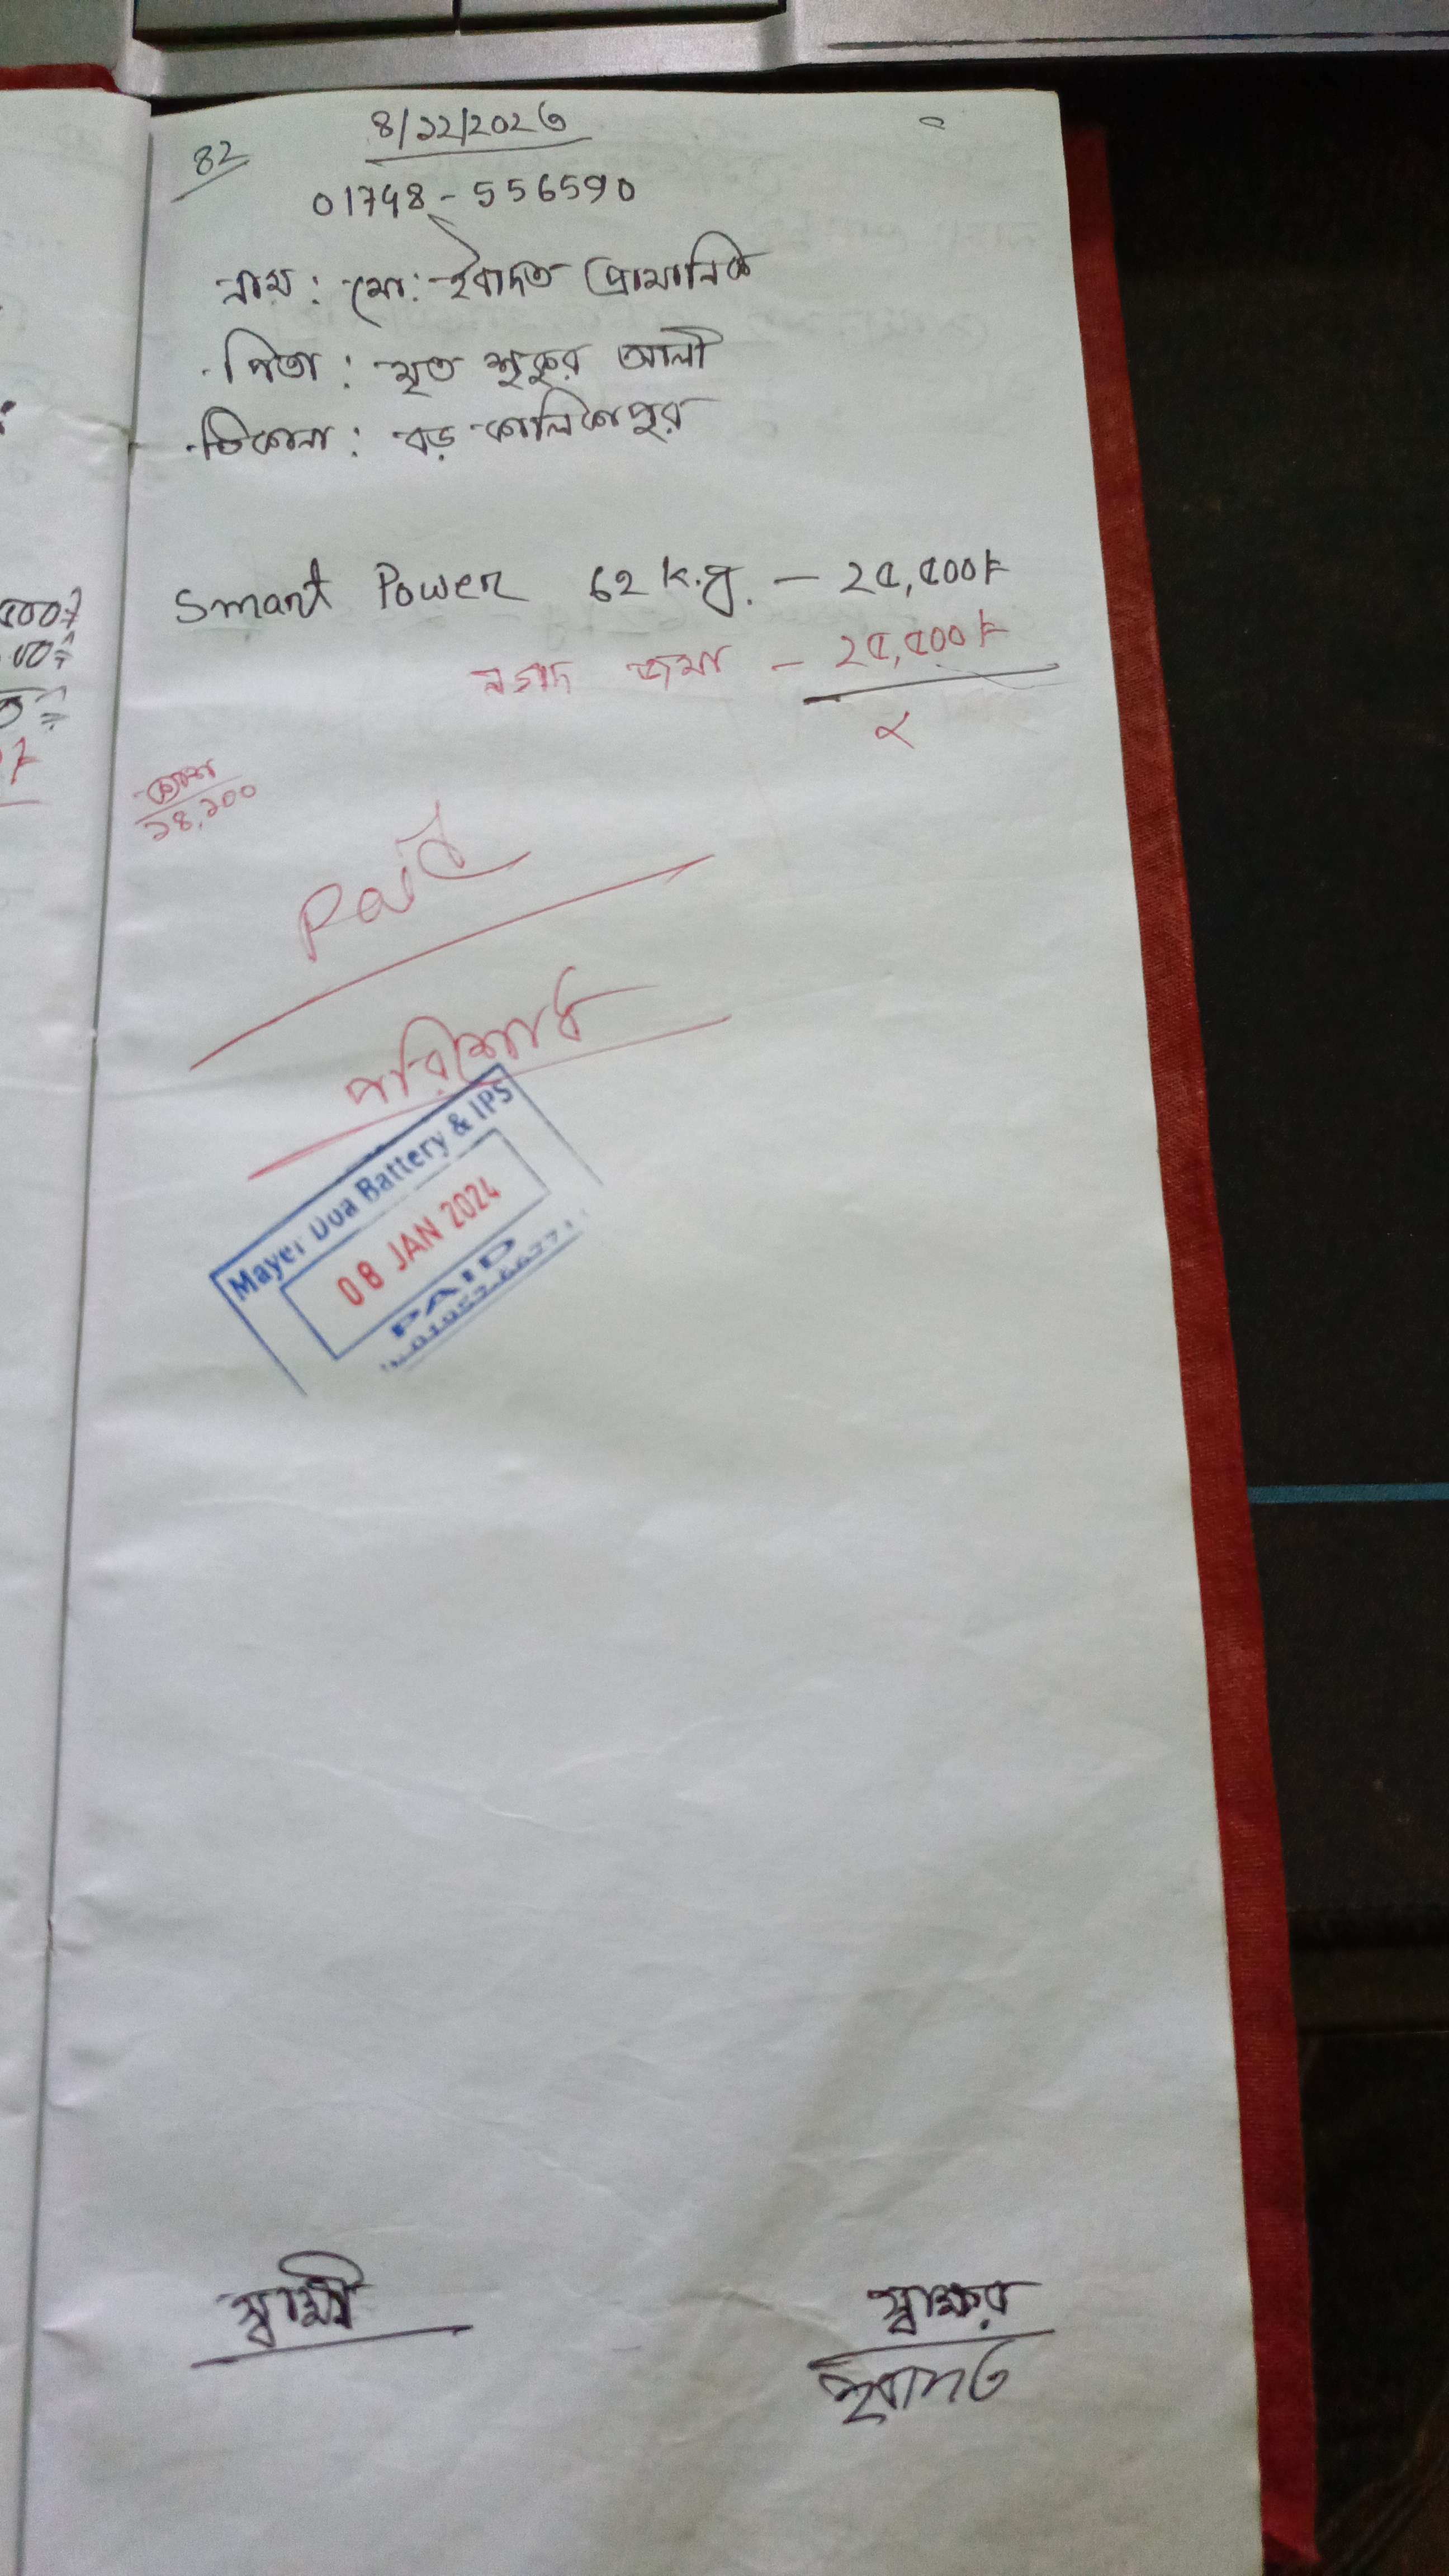 ৪২
৪/১২/২০২৩
01748-556590
নাম: মো: ইবাদত প্রামানিক
পিতা: মৃত শুকুর আলী
ঠিকানা: বড় কালিকাপুর
Smart Power 62 k.g. — ২৫,৫০০৳
নগদ জমা — ২৫,৫০০৳
১৪,১০০
Paid
পরিশোধ
Mayer Dua Battery & IPS
08 JAN 2024
PAID
স্বাক্ষী
স্বাক্ষর
ইবাদত